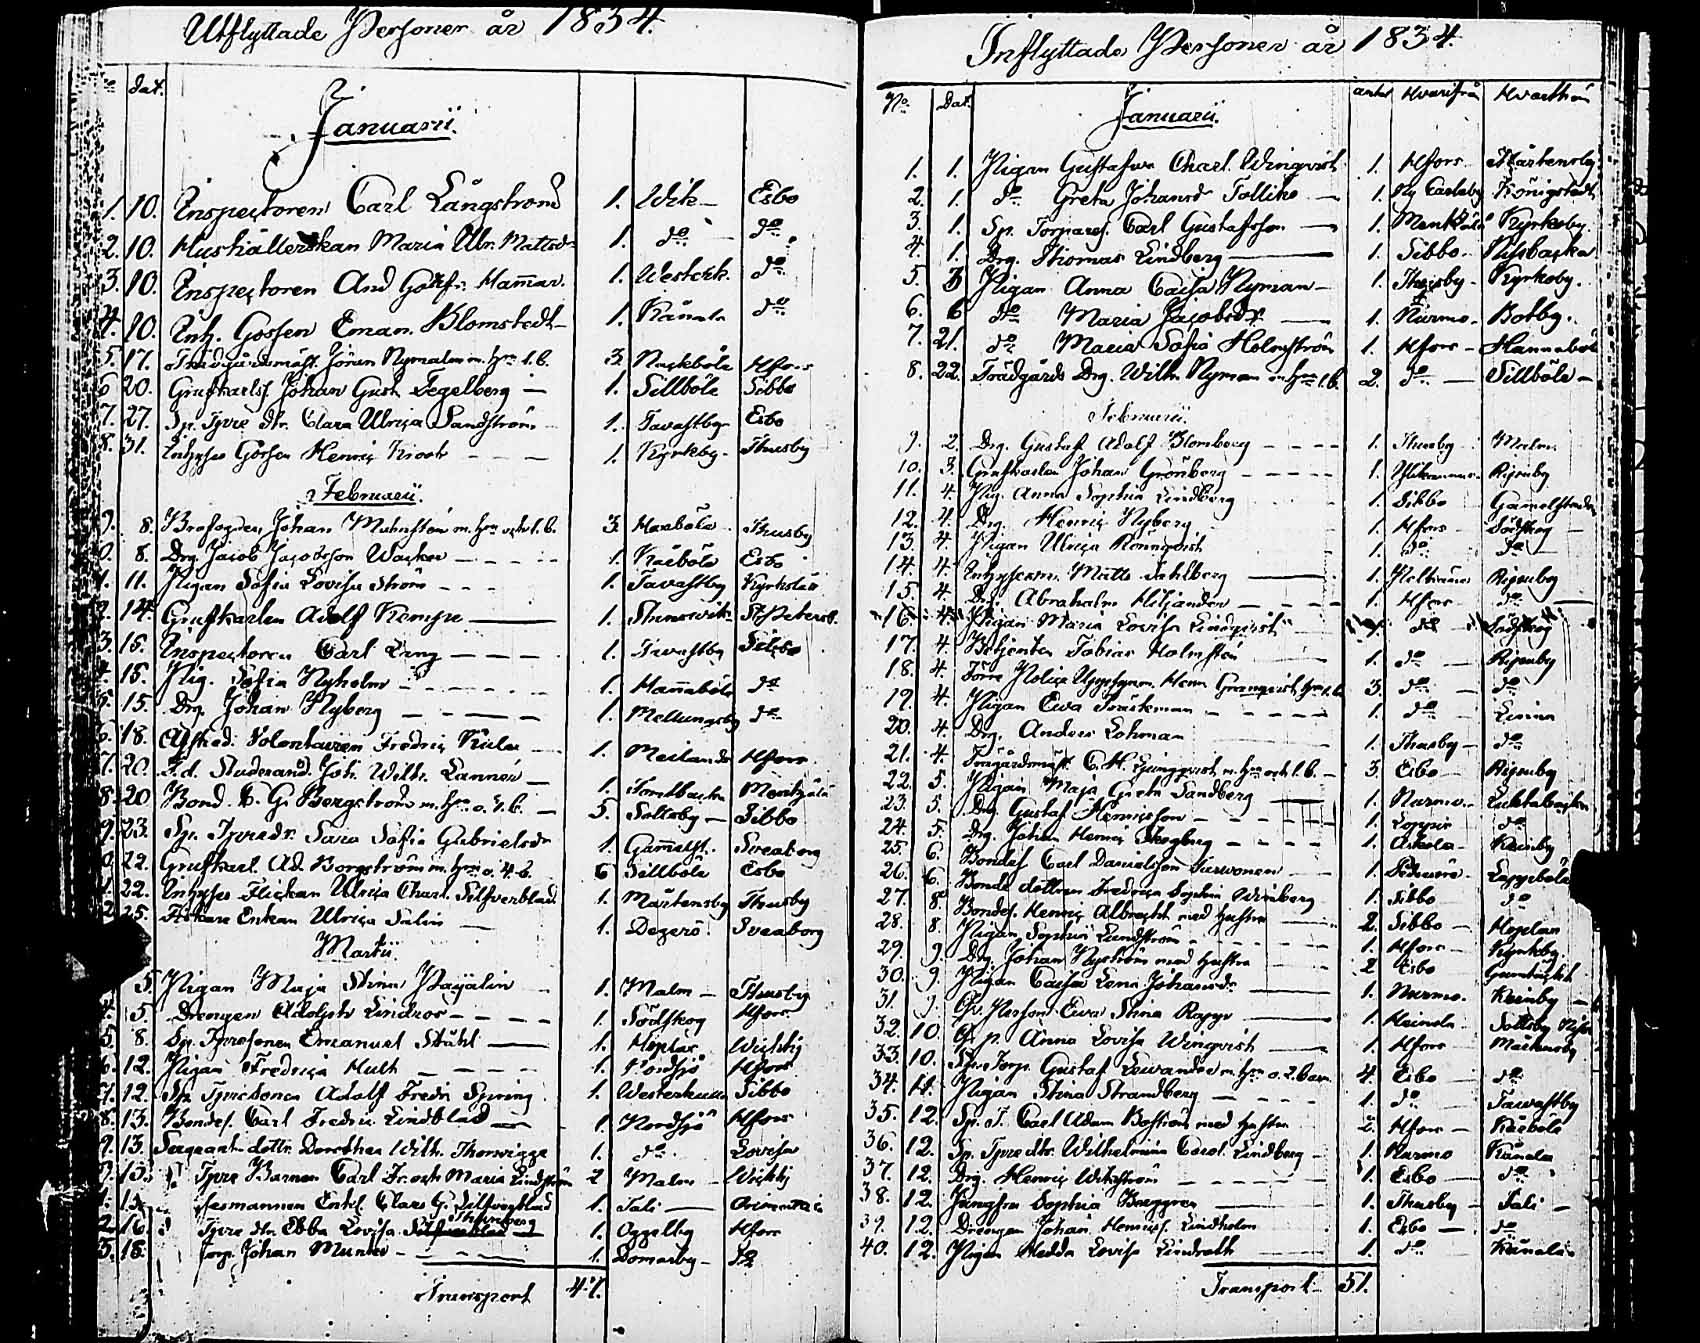 Utflyttade Personer år 1834.
dat.
Januarii.
1. 10. Inspectoren Carl Långström 1. Wik Esbo
2. 10. Hushållerskan Maria Ulr. Mattsdr 1. do do
3. 10. Inspectoren And. Gottfr. Hammar 1. Westerk. do
4. 10. Enh. Gossen Eman. Blomstedt 1. Kånala do
5. 17. Trädgårdsmäst. Jöran Nymalm m. hu 1. b. 3. Nackböle Hfors
6. 20. Grufkarls. Johan Gust. Segelberg 1. Sillböle Sibbo
7. 27. Sp. Torpre dtr. Clara Ulrica Sandström 1. Tavastby Esbo
8. 31. Enhyses Gossen Henric 1. Kyrkby Thusby
Februarii.
9. 8. Johan Malmstén m. hu och 1. b. 3. Haxböle Thusby
8. Drg. Jacob Jacobsson Wacker 1. Kårböle Esbo
11. Pigan Sofia Lovisa Ström 1. Tavastby Kyrkslät
14. Grufkarlen Adolf Kempe 1. St. Petersb.
15. Inspectoren Carl Lang 1. Tavastby Sibbo
15. Pig. Sofia Nyholm 1. Hannaböle do
15. Drg. Johan Nyberg 1. Mellungsby do
18. Afsked. Volontairen Fredric 1. Meilands Hfors
20. F.d. Studerand. Joh. Wilh. Lannér 1. Tomtbacka Mäntsälä
20. Bond. C. G. Bergström m. hu o. 3. b. 5. Sottsby Sibbo
23. Sp. Torpredr. Sara Sofia Gabrielsdr 1. Gammelst. Sveaborg
22. Grufkarl. Ad. Borgström m. hu o. 4. b. 6 Sillböle Esbo
22. Enhyses Flickan Ulrica Charl. Silfverblad 1. Mårtensby Thusby
25. Fiskare Enkan Ulrica Salin 1. Degerö Sveaborg
Martii.
5. Pigan Maja Stina Payalin 1. Malm Thusby
5. Drengen Adolph Lindroos 1. Södskog Hfors
8. Sp. Torpsonen Emanuel Ståhl 1. Hoplax Wichtis
12. Pigan Fredrica Hult 1. Nordsjö Hfors
12. Sp. Torpsonen Adolf Fredr. Spring 1. Westerkulla Sibbo
13. Bondes. Carl Fredric Lindblad 1. Nordsjö Hfors
13. Sergeant dottr. Dorothea Wilh. 1. do Lovisa
13. Torpre Barnen Carl Fr. och Maria Lindström 2 Malm Wichtis
15. Clars G. Silfverblad 1. Tali
16. Torpre dtr. Ebba Lovisa 1. Oggelby Hfors
18. Torp. Johan Munter 1. Domarby do
Transport 47.

Inflyttade Personer år 1834.
No. Dat. antal Hvarifrån Hvarthän
Januarii.
1. 1. Pigan Gustafva Charl. Winqvist 1. Hfors Mårtensby
2. 1. do Greta Johansdr Tollike 1. Ny Carleby Königstedt
3. 1. Sp. Torpares. Carl Gustafsson 1. Mäntsälä Kyrkoby
4. 1. Drg. Thomas Lindberg 1. Sibbo Nissbacka
5. 3 Pigan Anna Caisa Nyman 1. Thusby Kyrkoby.
6. 6 do Maria Jacobsdr 1. Nurmo Botby.
7. 21. do Maria Sofia Holmström 1. Hfors Hannaböle
8. 22. Trädgårds Drg. Wilh. Nyman m. hu 1. b. 2. do Sillböle
Februarii.
9. 2. Drg. Gustaf Adolf Blomberg 1. Thusby Malm
10. 3. Grufkarlen Johan Grönberg 1. Ripuby
11. 4. Pig. Anna Sophia Lindberg 1. Sibbo Gamelstaden
12. 4. Drg. Henric Nyberg 1. Hfors Södskog
13. 4. Pigan Ulrica Rönnqvist 1. do do
14. 4. Enhysesm. Matts Dahlberg 1. Ripuby
15. 4. Drg. Abraham Hiljander 1. Hfors do
16. 4. Pigan Maria Lovisa Lindqvist 1. do Södskog
17. 4. Betjenten Tobias Holmstén 1. do Ripuby
18. 4. Förre Police Uppsynm. Henr. Granqvist, hu 1. b. 3. do do
19. 4. Pigan Ewa Träskman 1. do
20. 4. Drg. Anders Lohman 1. Thusby do
21. 4. Trägårdsmäst. C. H. Ljungqvist m. hu och 1. b. 3. Esbo Ripuby
22. 5. Pigan Maja Greta Sandberg 1. Nurmo
23. 5. Drg. Gustaf Henricsson 1. Loppis do
24. 5. Drg. Johan Henric Skogberg 1. Askola
25. 6. Bondes. Carl Danielsson 1. Lappböle
26. 6. Bonde dottren Fredrica Sophia Winberg 1. Sibbo do
27. 8. Bondes. Henric Albrecht med hustru 2. Sibbo Hoplax
28. 8. Pigan Sophia Lundström 1. Hfors Kyrkoby
29. 9. Drg. Johan Nyström med hustru 2 Esbo Gumtäckt
30. 9. Pigan Caisa Lena Johansdr 1. Nurmo.
31. 9. Ewa Stina 1. Heinola Sottsby
32. 10 Anna Lovisa Winqvist 1. Hfors Mårtensby
33. 10. Sp. Torp. Gustaf Lewander m. hu o. 2. barn 4. Esbo do
34. 11. Pigan Stina Strandberg 1. do Tavastby
35. 12. Sp. T. Carl Adam med hustru 2. Hfors Kårböle
36. 12. Sp. Torpre dtr. Wilhelmina Carol. Lindberg 1. Nurmo Kånala
37. 12. Drg. Henric Wikström 1. Esbo do
38. 12. Jungfru Sophia Berggren 1. Thusby Tali
39. 12. Drengen Johan Henricss. Lindholm 1. Esbo do
40. 12. Pigan Hedda Lovisa Lindroth 1. do Kånala
Transport 51.